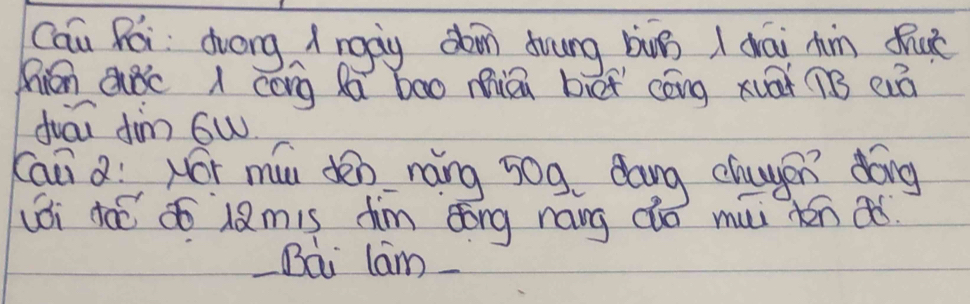 Câu hỏi: trong 1 ngày đêm trung bình 1 trái tim thực
hiện được 1 công là bao nhiêu biết công xuất TB của
trái tim 6W.
Câu 2: Một mũi tên nặng 50g đang chuyển động
với tốc độ 12m/s tìm động năng của mũi tên đó.
- Bài làm -